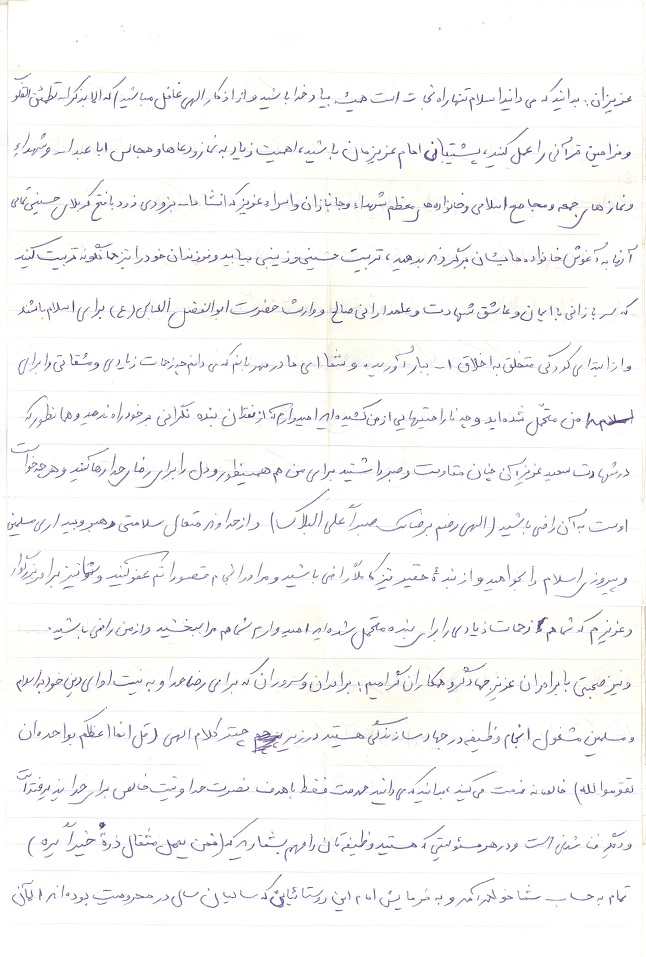 عزیزان: بدانید که می دانید اسلام تنها راه نجات است همیشه بیاد خدا باشید و از اذکار الهی غافل مباشید که الا بذکر الله تطمئن القلوب
و فرامین قرآنی را عمل کنید، پشتیبان امام عزیزمان باشید، اهمیت زیاد به نماز و دعاها و مجالس ابا عبدا... و شهداء
و نماز های جمعه و مجامع اسلامی و خانواده های معظم شهداء و جانبازان و اسراء عزیز که انشاء ا... بزودی زود با فتح کربلای حسینی تمامی
آنها به آغوش خانواده هایشان برگردند بدهید، تربیت حسینی و زینبی بیابید و فرزندان خود را نیز همانگونه تربیت کنید
که سربازانی با ایمان و عاشق شهادت و علمدارانی صالح و وارث حضرت ابوالفضل العباس (ع) برای اسلام باشند
و از ابتدای کودکی متخلق به اخلاق ا... ببار آورید. و شما ای مادر مهربانم که می دانم چه زحمات زیادی و مشقاتی را برای
من متحمل شده اید و چه ناراحتیهایی از من کشیده اید امیدوارم که از فقدان بنده نگرانی بر خود راه ندهید و همانطور که
در شهادت سعید عزیز آن چنان مقاومت و صبر داشتید برای من هم همینطور و دل را برای رضای خدا رها کنید و هر چه خواست
اوست به آن راضی باشید (الهی رضم برضائک صبراً علی البلائک) و از خداوند متعال سلامتی رهبر و بیداری مسلمین
و پیروزی اسلام را بخواهید و از بندهٔ حقیر نیز کاملاً راضی باشید و مرا در انجام قصوراتم عفو کنید و شما نیز برادر بزرگوار
و عزیزم که شما هم زحمات زیادی را برای بنده متحمل شده اید امیدوارم شما هم مرا ببخشید و از من راضی باشید.
و نیز صحبتی با برادران عزیز جهادگر و همکاران گرامیم: برادران و سروران که برای رضا خدا و به نیت ادای دین خود به اسلام
و مسلمین مشغول انجام وظیفه در جهاد سازندگی هستید در زیر چتر کلام الهی (قل انما اعظکم بواحده ان
تقوموا لله) خالصانه خدمت می کنید بدانید که می دانید خدمت فقط با هدف نصرت خدا و نیت خالص برای خدا پذیرفته است
و دیگر فنا شدنی است و در هر مسئولیتی که هستید وظیفه تان را مهم بشمارید که (فمن یعمل مثقال ذرةٍ خیراً یره)
تمام به حساب شما خواهد آمد و به فرمایش امام این روستائیانی که سالیان سال در محرومیت بوده اند الان